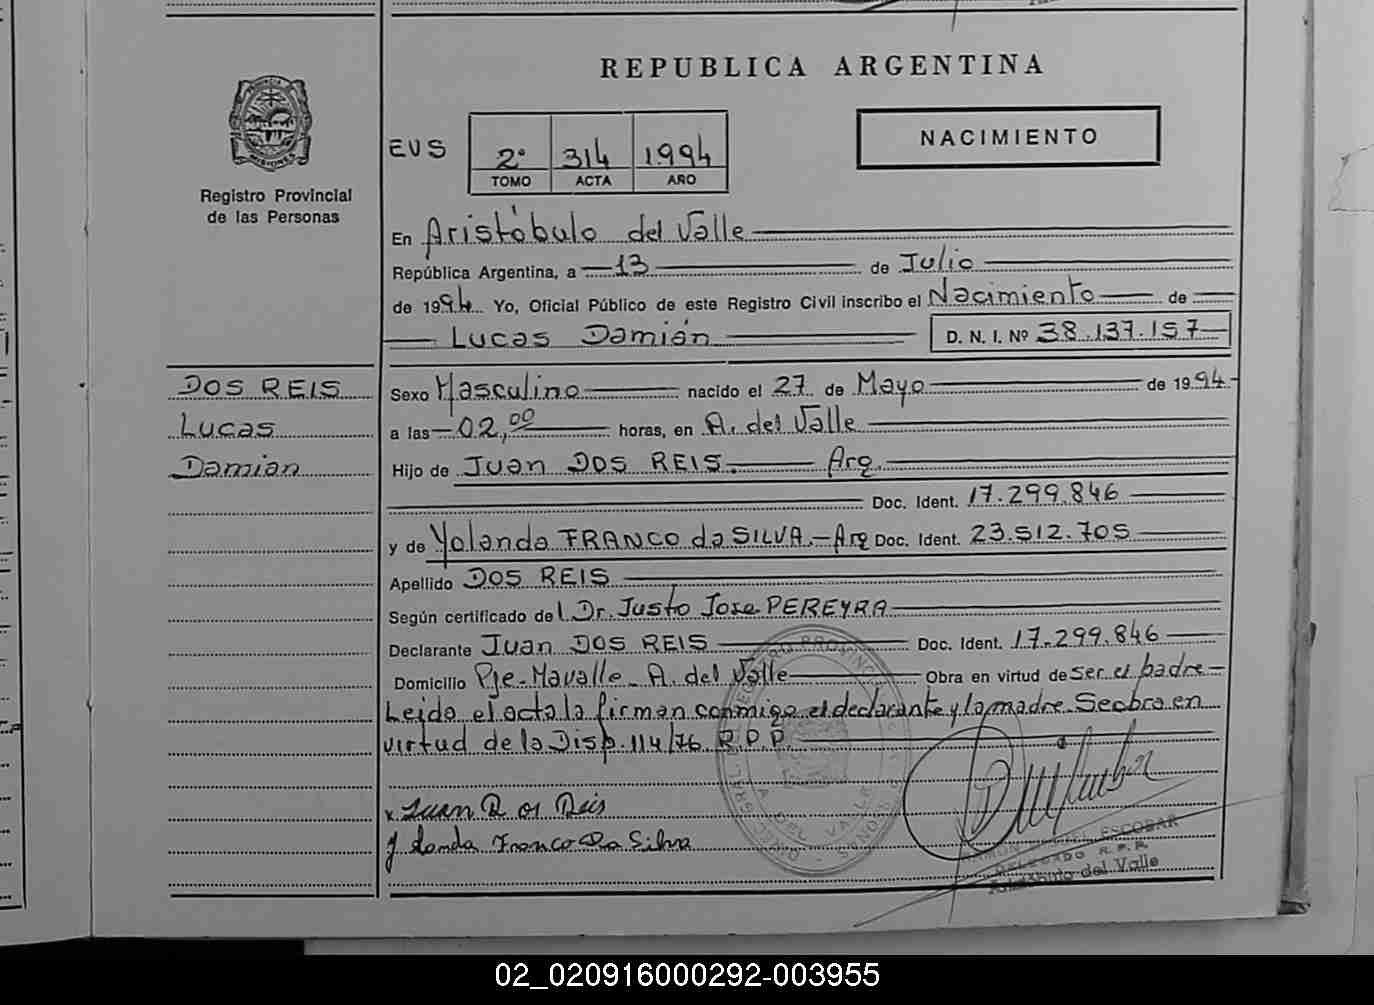 REPUBLICA ARGENTINA
PROVINCIA DE
MISIONES
Registro Provincial
de las Personas
EVS
2º 314 1994
TOMO ACTA AÑO
NACIMIENTO
En Aristóbulo del Valle
República Argentina, a 13 de Julio
de 1994 Yo, Oficial Público de este Registro Civil inscribo el Nacimiento de
Lucas Damián D. N. I. Nº 38.137.157
DOS REIS
Lucas
Damian
Sexo Masculino nacido el 27 de Mayo de 1994
a las 02,00 horas, en A. del Valle
Hijo de Juan DOS REIS. Arg.
Doc. Ident. 17.299.846
y de Yolanda FRANCO da SILVA.-Arg Doc. Ident. 23.512.705
Apellido DOS REIS
Según certificado del Dr. Justo Jose PEREYRA
Declarante Juan DOS REIS Doc. Ident. 17.299.846
Domicilio Pje. Mavalle - A. del Valle Obra en virtud de ser el padre
Leida el acta la firman conmigo el declarante y la madre. Se obra en
virtud de la Disp. 114/76 R.P.P.
x Juan D os Reis
Yolanda Franco Da Silva
ESCOBAR
DELEGADO R.P.P.
Aristóbulo del Valle
02_020916000292-003955